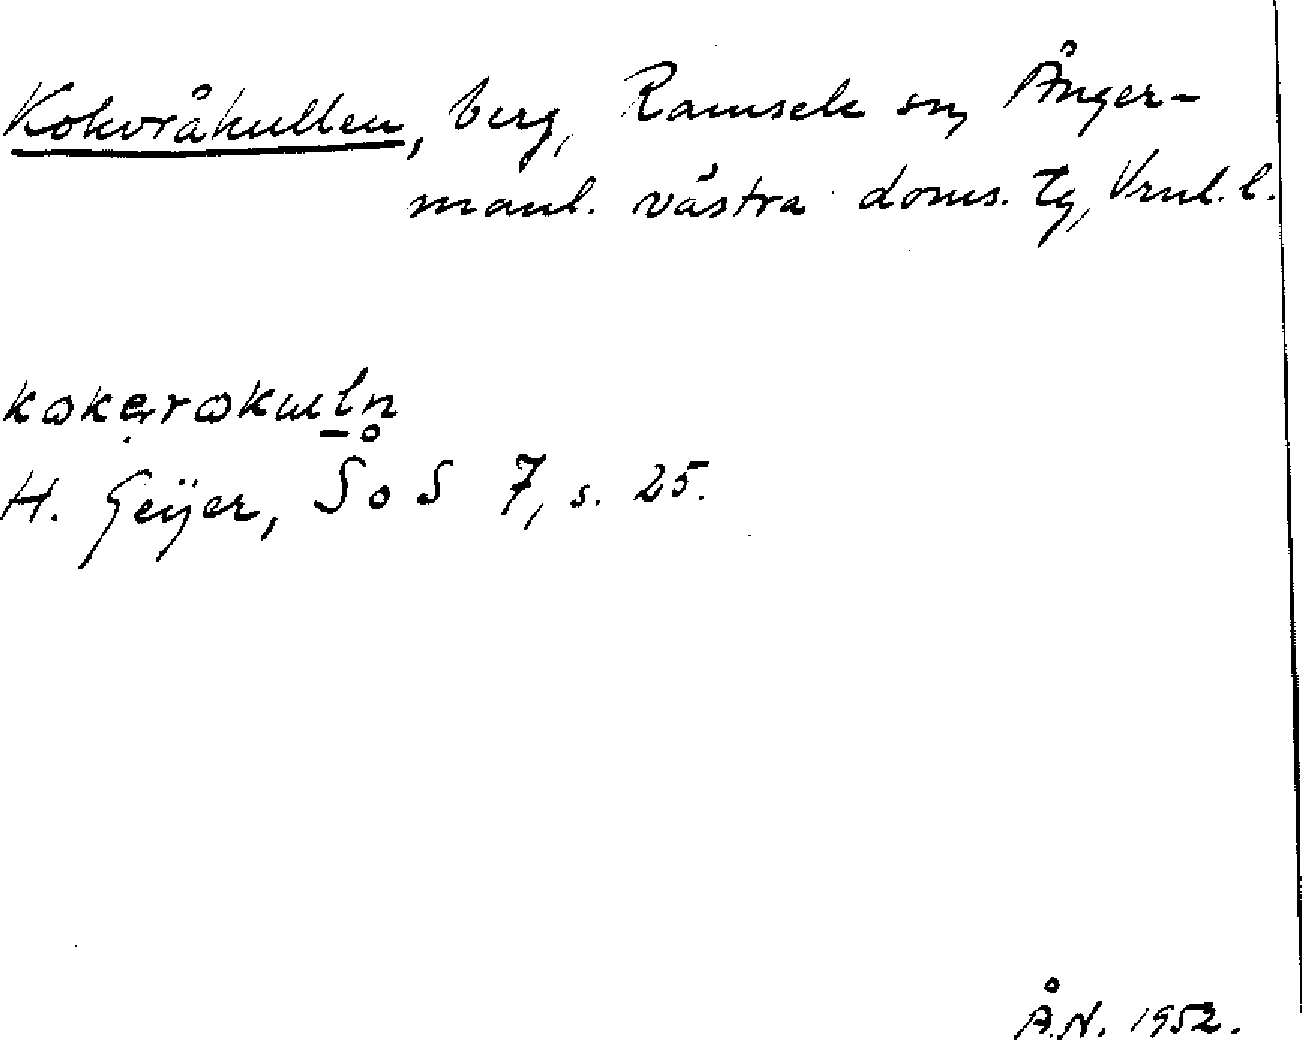 Kokvråkullen, berg, Ramsele sn, Ånger-
manl. västra doms. tg, Vrnl. l.
kokərokuln̥
H. Geijer, SoS 7, s. 25.
Å.N. 1952.